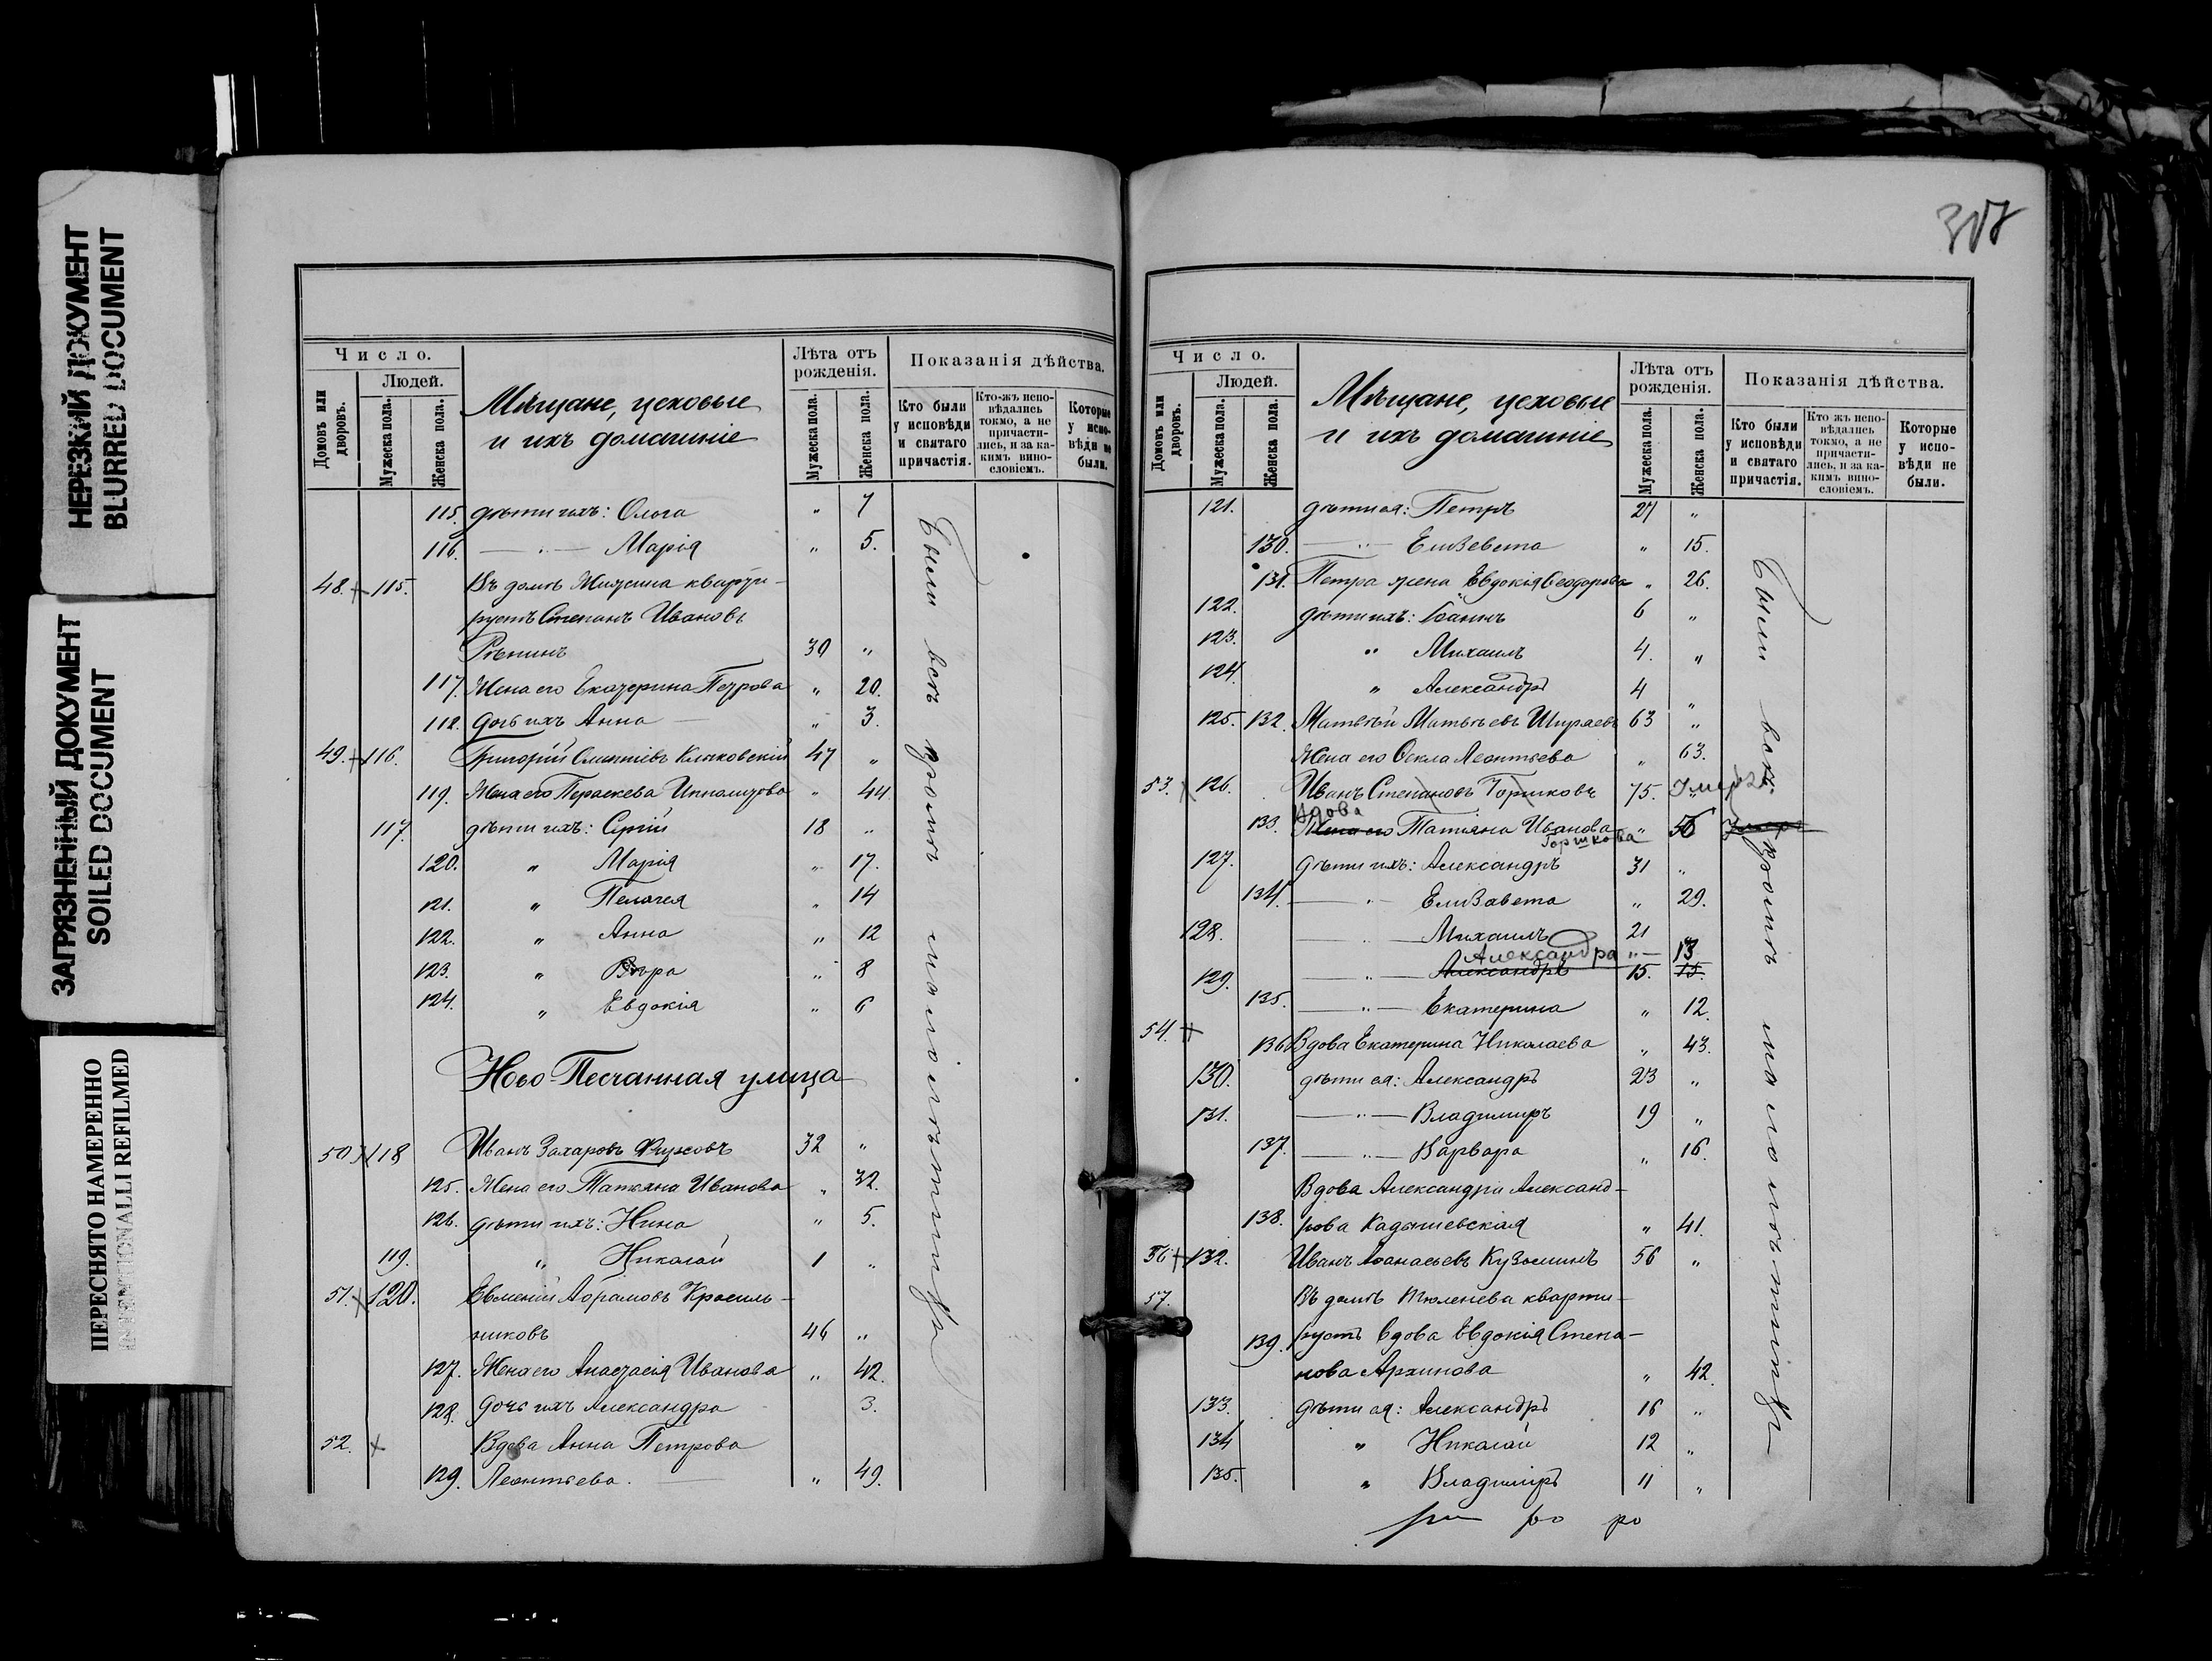 НЕРЕЗКИЙ ДОКУМЕНТ
BLURRED DOCUMENT
ЗАГРЯЗНЕННЫЙ ДОКУМЕНТ
SOILED DOCUMENT
ПЕРЕСНЯТО НАМЕРЕННО
INTENTIONALLI REFILMED
Число. Лѣта отъ рожденія. Показанія дѣйства.
Домовъ или дворовъ. Людей. Мужеска пола. Женска пола.
Мѣщане, цеховые
и ихъ домашніе
Мужеска пола. Женска пола. Кто были у исповѣди и святаго причастія. Кто-жъ испо-вѣдались токмо, а не причасти-лись, и за ка-кимъ вино-словіемъ. Которые у испо-вѣди не были.
115. дѣти ихъ: Ольга " 7
116. — " — Марія " 5.
48. + 115. Въ домѣ квар­ти-
руетъ Степанъ Ивановъ
Рѣпинъ 30 "
117. Жена его Екатерина Петрова " 20.
118. дочь ихъ Анна — " 3.
49. + 116. Григорій 47 "
119. Жена его Параскева " 44
117. дѣти ихъ: Сергій 18 "
120. " Марія " 17.
121. " Пелагея " 14
122. " Анна " 12
123. " Вѣра " 8
124. " Евдокія " 6
Ново-Песчанная улица
50 + 118 Иванъ Захаровъ 32 "
125. Жена его Татьяна Иванова " 32.
126. дѣти ихъ: Нина " 5.
119. " Николай 1 "
51. + 120. Евменій Абрамовъ Красиль-
никовъ 46 "
127. Жена его Анастасія Иванова " 42.
128. дочь ихъ Александра 3.
52. + Вдова Анна Петрова
129. Леонтьева. — " 49.
Были всѣ кромѣ
307
Число. Лѣта отъ рожденія. Показанія дѣйства.
Домовъ или дворовъ. Людей. Мужеска пола. Женска пола.
Мѣщане, цеховые
и ихъ домашніе
Мужеска пола. Женска пола. Кто были у исповѣди и святаго причастія. Кто жъ испо-вѣдались токмо, а не причасти-лись, и за ка-кимъ вино-словіемъ. Которые у испо-вѣди не были.
121. дѣти ея: Петръ 27 "
130. — " — Елизавета " 15.
131. Петра жена Евдокія Ѳеодорова " 26.
122. дѣти ихъ: Іоаннъ 6 "
123. " Михаилъ 4. "
124. " Александръ 4 "
125. 132. Матвѣй Матвѣевъ Ширяевъ 63 "
Жена его Ѳекла Леонтьева " 63.
53. + 126. Иванъ Степановъ Горшковъ 75. " Умеръ
Вдова
133. Жена его Татьяна Иванова " 56
Горшкова
127. дѣти ихъ: Александръ 31 "
134. — " — Елизавета " 29.
128. — " — Михаилъ 21 "
Александра " — 13
129. — " — Александръ 15. 15.
135. — " — Екатерина " 12.
54. + 136 Вдова Екатерина Николаева " 43.
130. дѣти ея: Александръ 23 "
131. — " — Владимиръ 19 "
137. — " — Варвара " 16.
Вдова Александра Александ-
138. рова " 41.
56 + 132. Иванъ Аѳанасьевъ Кузьминъ 56 "
57. Въ домѣ Тюленева кварти-
139. руетъ вдова Евдокія Степа-
нова Архипова " 42.
133. дѣти ея: Александръ 16 "
134 " Николай 12 "
135. " Владиміръ 11 "
Были всѣ кромѣ